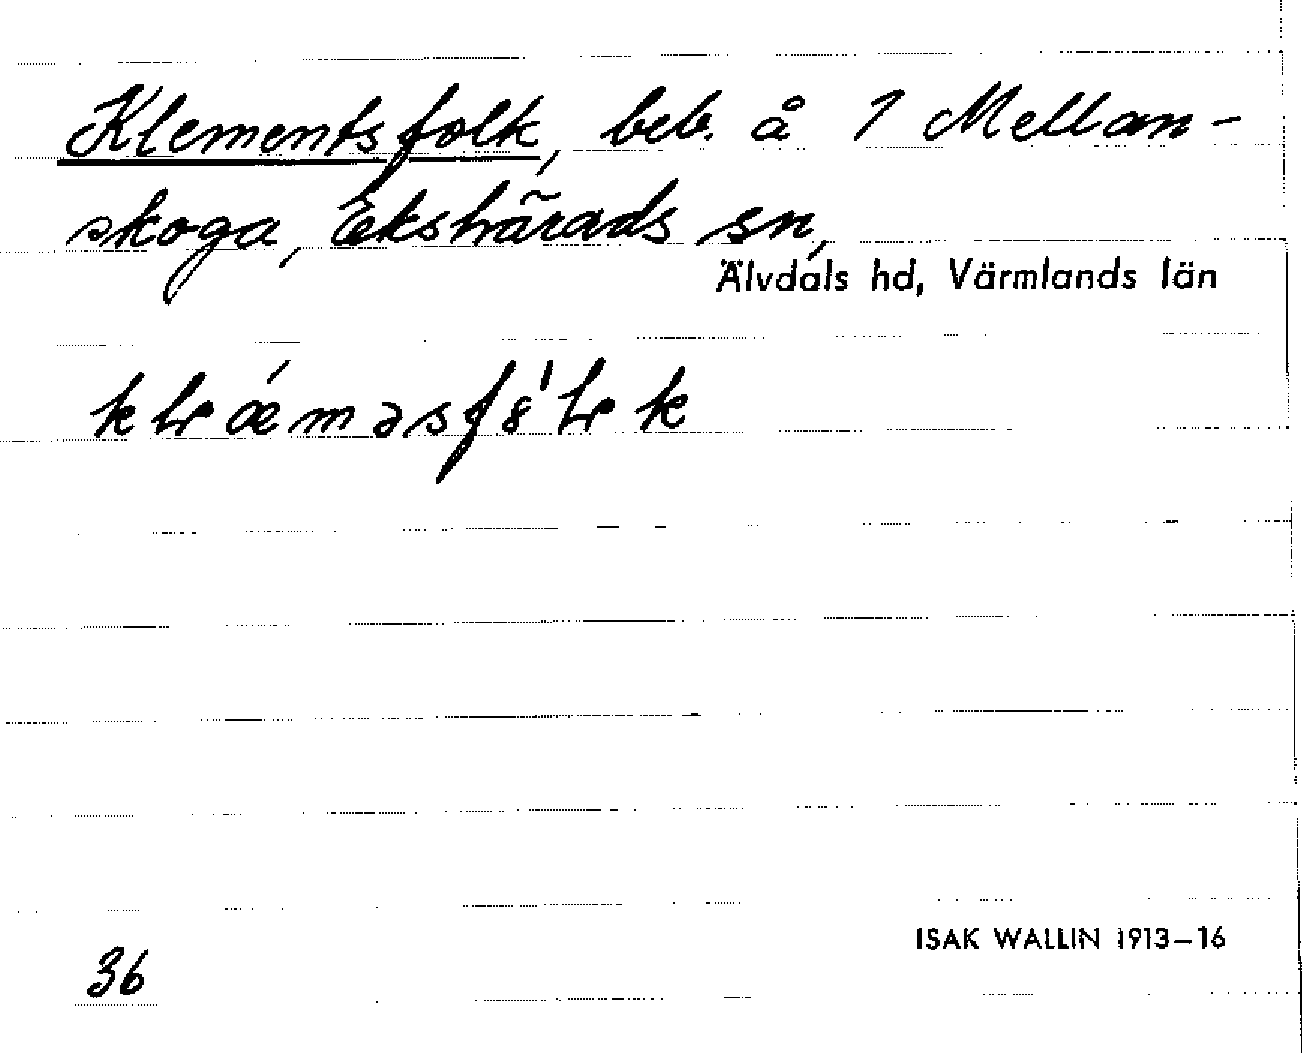 Klementsfolk, beb. å 1 Mellan-
skoga, Ekshärads sn,
Älvdals hd, Värmlands län
36
ISAK WALLIN 1913–16